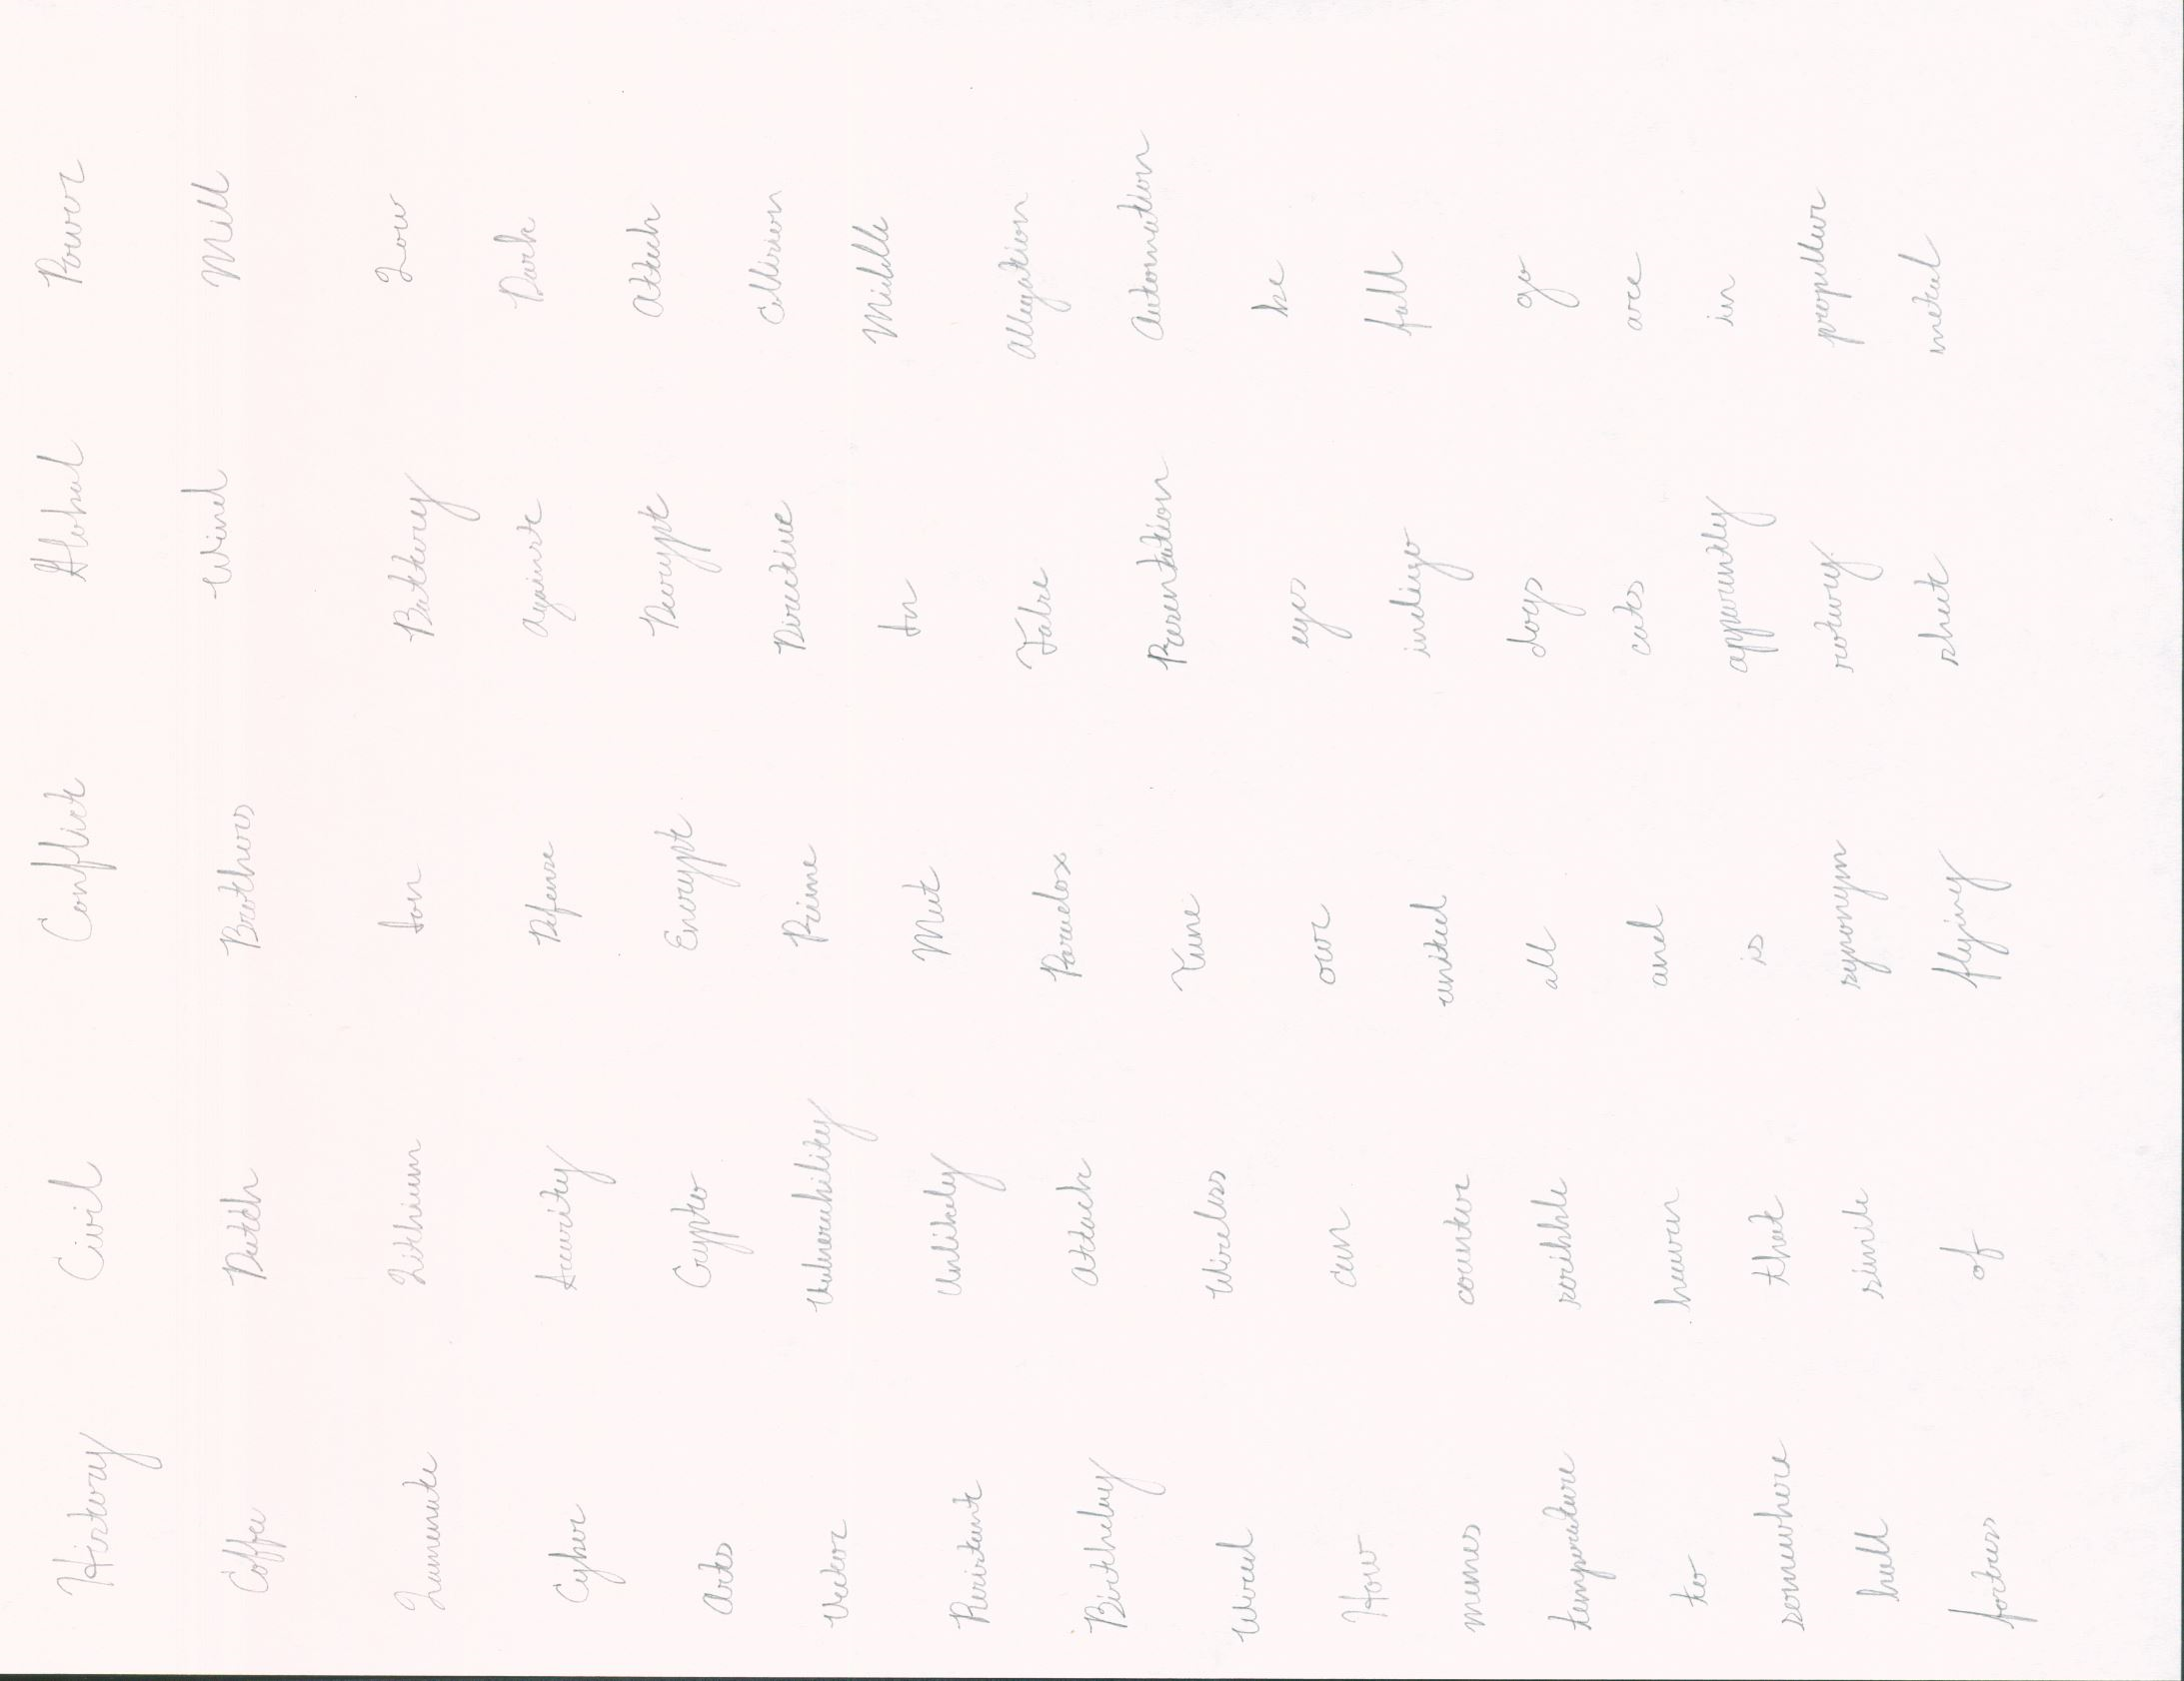 History Civil Conflict Global Power
Coffee Dutch Brothers Wind Mill
Laminate Lithium Ion Battery Low
Cyber Security Defense Against Dark
Arts Crypto Encrypt Decrypt Attack
Vector Vulnerability Prime Directive Collision
Resistant Unlikely Meet In Middle
Birthday Attack Paradox False Allegation
Wired Wireless Tune Presentation Automation
How can our eyes be
counter united indigo fall
temperature scribble all dogs go
to heaven and cats are
somewhere that is apparently in
hell simile synonym rotary propeller
fortress of flying sheet metal